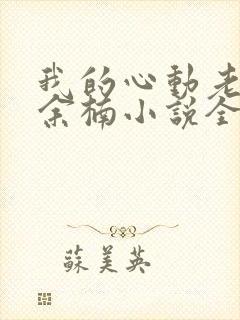 我的心動老
余楠小說全
蘇美英